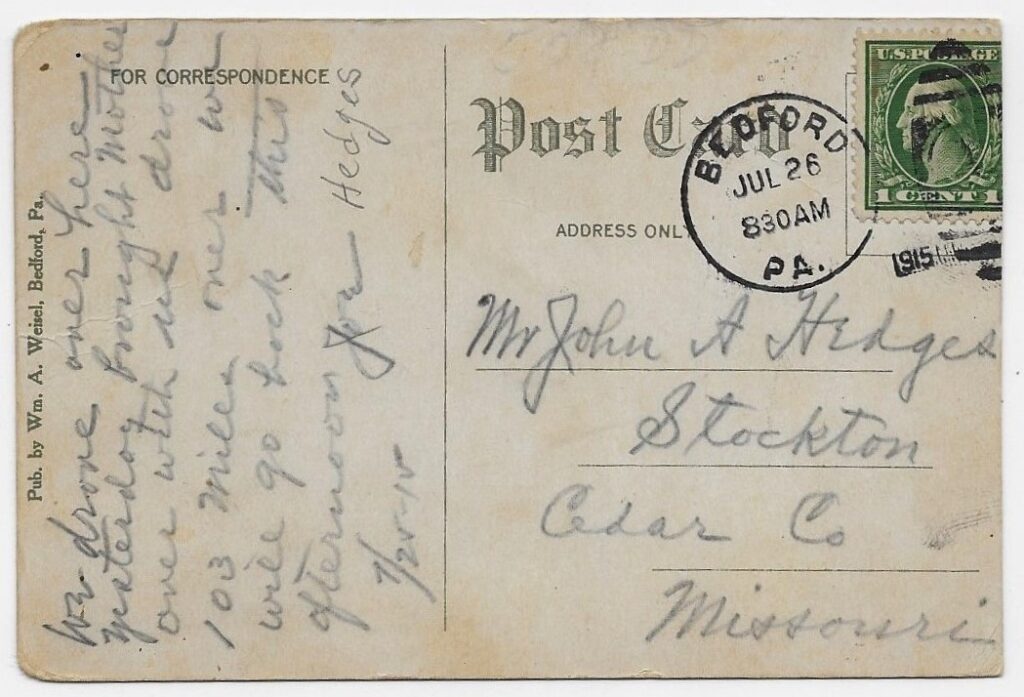 FOR CORRESPONDENCE
Post Card
ADDRESS ONLY
Pub. by Wm. A. Weisel, Bedford, Pa.
We drove over here
yesterday brought Mother
over with us drove
103 miles over we
will go back this
afternoon Hedges
7/25-15
BEDFORD
JUL 26
830AM
PA.
1915
U.S. POSTAGE
1 CENT 1
Mr John A Hedges
Stockton
Cedar Co
Missouri